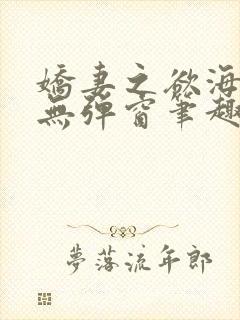 嬌妻之欲海
無彈窗筆趣
夢落流年郎